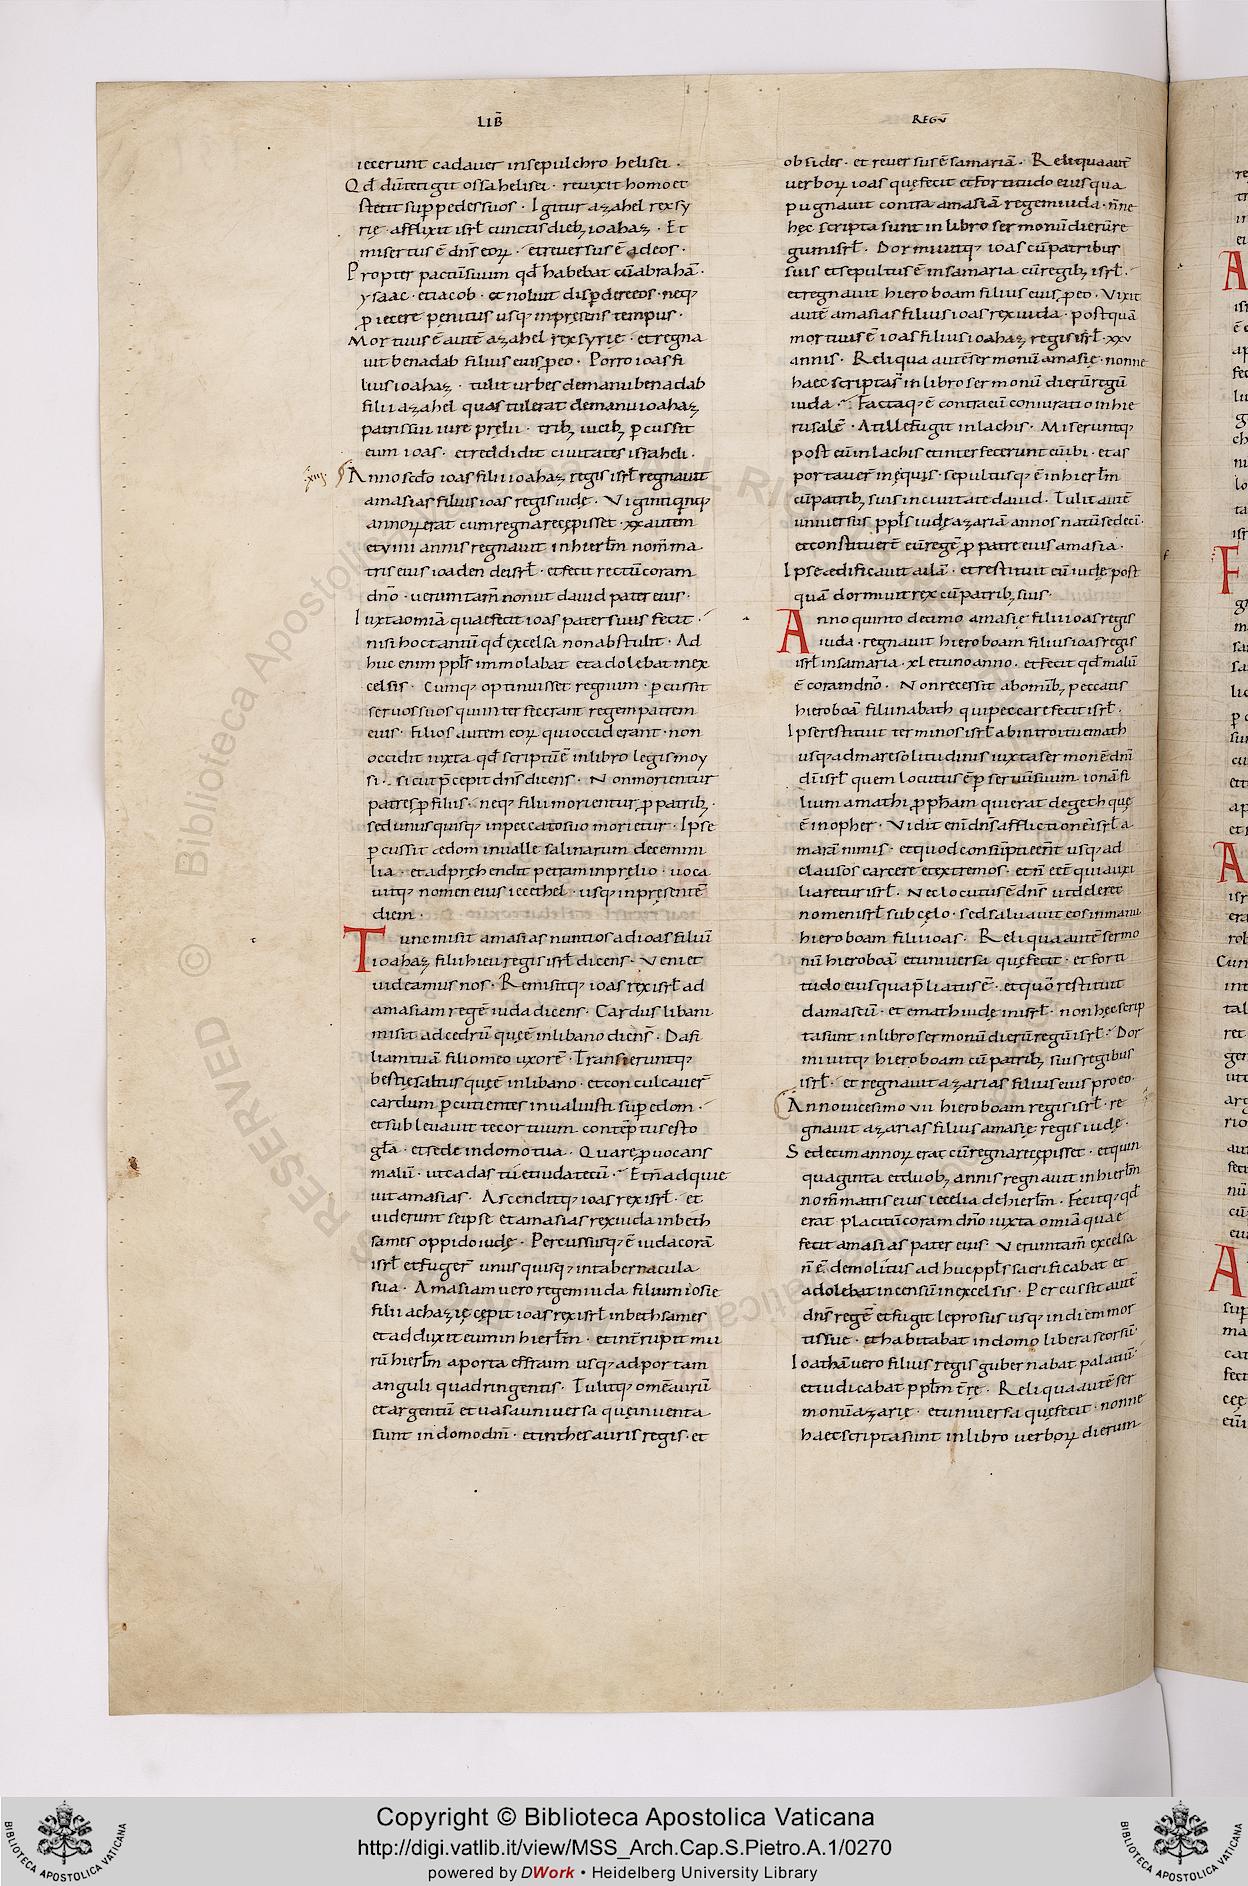 LIB̄
iecerunt cadauer insepulchro helisei ·
Qd̄ dū tetigit ossa helisei · reuixit homo et
stetit sup pedes suos · Igitur azahel rex sy
rię · afflixit isrl̄ cunctis dieb; ioahaz · Et
misertus ē dn̄s eoꝝ · et reuersus ē adeos ·
Propter pactū suum qd̄ habebat cū abrahā ·
ysaac · et iacob · et noluit disꝑdere eos · neq;
ꝓiecere pęnitus usq; inpręsens tempus ·
Mortuus ē autē azahel rex syrię · et regna
uit benadab filius eius ꝓ eo · Porro ioas fi
lius ioahaz · tulit urbes demanu benadab
filii azahel quas tulerat demanu ioahaz
patris sui iure pręlii · trib; uicib; ꝑcussit
eum ioas · et reddidit ciuitates israheli ·
Anno scd̄o ioas filii ioahaz regis isrl̄ regnauit
amasias filius ioas regis iudę · Viginti qnq;
annoꝝ erat cum regnare cępisset · xx autem
et viiii annis regnauit inhierl̄m nom̄ ma
tris eius ioaden de isrl̄ · et fecit rectū coram
dn̄o · uerumtam̄ non ut dauid pater eius ·
Iuxta omīa quae fecit ioas pater suus fecit ·
nisi hoc tantū qd̄ excelsa non abstulit · Ad
huc enim ppl̄s immolabat et adolebat inex
celsis · Cumq; optinuisset regnum · ꝑcussit
seruos suos qui interfecerant regem patrem
eius · filios autem eoꝝ qui occiderant · non
occidit iuxta qd̄ scriptū ē inlibro legis moy
si · sicut p̄cepit dn̄s dicens · Non morientur
patres ꝓ filiis · neq; filii morientur ꝓ patrib; ·
sed unusquisq; inpeccato suo morietur · Ipse
ꝑcussit ędom inualle salinarum decem mi
lia · et adpręhendit petram inprelio · uoca
uitq; nomen eius iecethel · usq; inpręsentē
diem ·
Tunc misit amasias nuntios ad ioas filiū
ioahaz filii hieu regis isrl̄ dicens · Veni et
uideamus nos · Remisitq; ioas rex isrl̄ ad
amasiam regē iuda dicens · Cardus libani
misit ad cedrū quę ē inlibano dicn̄s · Da fi
liam tuā filio meo uxorē · Transieruntq;
bestię saltus quę ē inlibano · et conculcauer̄
cardum ꝑcutientes inualuisti sup edom ·
et subleuauit te cor tuum · contēptus esto
gl̄a · et sede indomo tua · Quare ꝓuocans
malū · ut cadas tu et iuda tecū · Et n̄ adquie
uit amasias · Ascenditq; ioas rex isrl̄ · et
uiderunt se ipse et amasias rex iuda inbeth
sames oppido iudę · Percussusq; ē iuda corā
isrl̄ et fuger̄ unusquisq; intabernacula
sua · Amasiam uero regem iuda filium iosie
filii achazię cępit ioas rex isrl̄ inbethsames
et adduxit eum in hierl̄m · et int̄rupit mu
rū hierl̄m aporta effraim usq; ad portam
anguli quadringentis · Tulitq; omē aurū
et argentū et uasa uniuersa quę inuenta
sunt in domo dn̄i · et inthesauris regis · et
REGŪ
obsides · et reuersus ē samariā · Reliqua aut̄
uerboꝝ ioas quę fecit et fortitudo eius qua
pugnauit contra amasiā regem iuda · n̄ne
hęc scripta sunt in libro sermonū dierū re
gum isrl̄ · Dormiuitq; ioas cū patribus
suis et sepultus ē insamaria cū regib; isrl̄ ·
et regnauit hieroboam filius eius ꝓ eo · Vixit
autē amasias filius ioas rex iuda · postquā
mortuus ē ioas filius ioahaz regis isrl̄ · xxv
annis · Reliqua autē sermonū amasię · nonne
haec scripta s̄ inlibro sermonū dierū regū
iuda · Factaq; ē contra eū coniuratio inhie
rusalē · At ille fugit inlachis · Miseruntq;
post eū inlachis et interfecerunt eū ibi · et as
portauer̄ inęquis · sepultusq; ē inhierl̄m
cū patrib; suis inciuitate dauid · Tulit autē
uniuersus ppl̄s iudę azariā annos natū sedeci ·
et constituer̄t eū regē ꝓ patre eius amasia ·
Ipse ædificauit ailā · et restituit eū iudę post
quā dormiuit rex cū patrib; suis ·
Anno quinto decimo amasię filii ioas regis
iuda · regnauit hieroboam filius ioas regis
isrl̄ insamaria · xl et uno anno · et fecit qd̄ malū
ē coram dn̄o · Non recessit ab omīb; peccatis
hieroboā filii nabath qui peccare fecit isrl̄ ·
Ipse restituit terminos isrl̄ ab introitu emath
usq; ad mare solitudinis iuxta sermonē dn̄i
dī isrl̄ quem locutus ē ꝑ seruū suum · ionā fi
lium amathi ꝓpham qui erat degeth quę
ē in opher · Vidit eni dn̄s afflictionē isrl̄ a
marā nimis · et quod consūpti eēnt usq; ad
clausos carcere et extremos · et n̄ eēt qui auxi
liaretur isrl̄ · Nec locutus ē dn̄s ut deleret
nomen isrl̄ sub cęlo · sed saluauit eos inmanu
hieroboam filii ioas · Reliqua autē sermo
nū hieroboā et uniuersa quę fecit · et forti
tudo eius qua p̄liatus ē · et quō restituit
damascū · et emath iudę inisrl̄ · non hęc scrip
ta sunt in libro sermonū dierū regū isrl̄ · Dor
miuitq; hieroboam cū patrib; suis regibus
isrl̄ · et regnauit azarias filius eius pro eo ·
Anno uicesimo vii hieroboam regis isrl̄ · re
gnauit azarias filius amasię regis iudę ·
Sedecim annoꝝ erat cū regnare cępisset · et quin
quaginta et duob; annis regnauit inhierl̄m
nom̄ matris eius iecelia de hierl̄m · Fecitq; qd̄
erat placitū coram dn̄o iuxta omīa quae
fecit amasias pater eius · Verumtam̄ excelsa
n̄ ē demolitus adhuc ppl̄s sacrificabat et
adolebat incensū inexcelsis · Percussit autē
dn̄s regē et fuit leprosus usq; indiem mor
tis sue · et habitabat indomo libera seorsū ·
Ioathā uero filius regis gubernabat palatiū ·
et iudicabat ppl̄m t̄rę · Reliqua autē ser
monū azarię · et uniuersa quę fecit · nonne
haec scripta sunt inlibro uerboꝝ dierum
Copyright © Biblioteca Apostolica Vaticana
http://digi.vatlib.it/view/MSS_Arch.Cap.S.Pietro.A.1/0270
powered by DWork • Heidelberg University Library
BIBLIOTECA APOSTOLICA VATICANA
BIBLIOTECA APOSTOLICA VATICANA